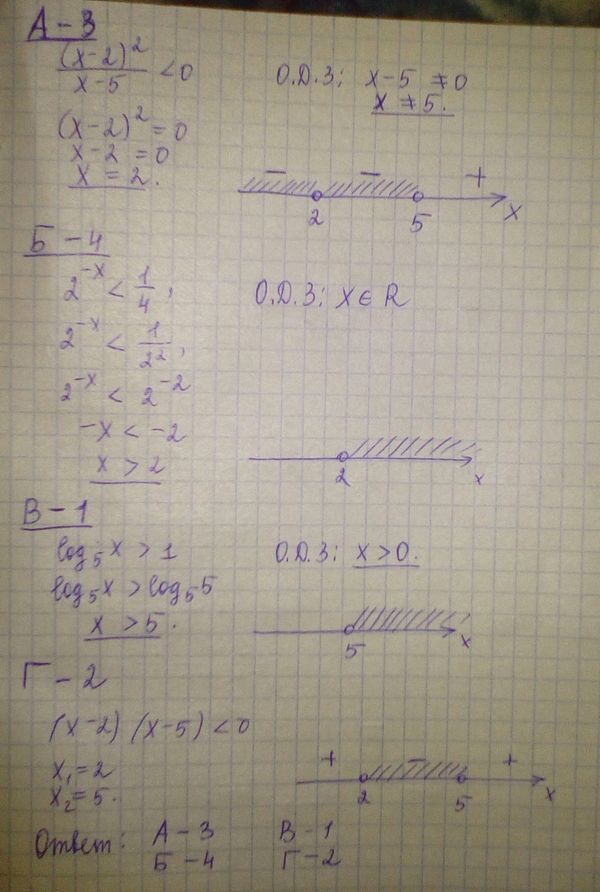 А-3
(x-2)²/(x-5) < 0 О.Д.З; x-5 ≠ 0
x ≠ 5.
(x-2)² = 0
x-2 = 0
x = 2.
− − +
2 5 x
Б-4
2^(-x) < 1/4, О.Д.З; x ∈ R
2^(-x) < 1/2²,
2^(-x) < 2^(-2)
-x < -2
x > 2
2 x
В-1
log₅x > 1 О.Д.З; x > 0.
log₅x > log₅5
x > 5.
5 x
Г-2
(x-2)(x-5) < 0
+ − +
x₁ = 2
x₂ = 5.
2 5 x
Ответ: А-3 В-1
Б-4 Г-2